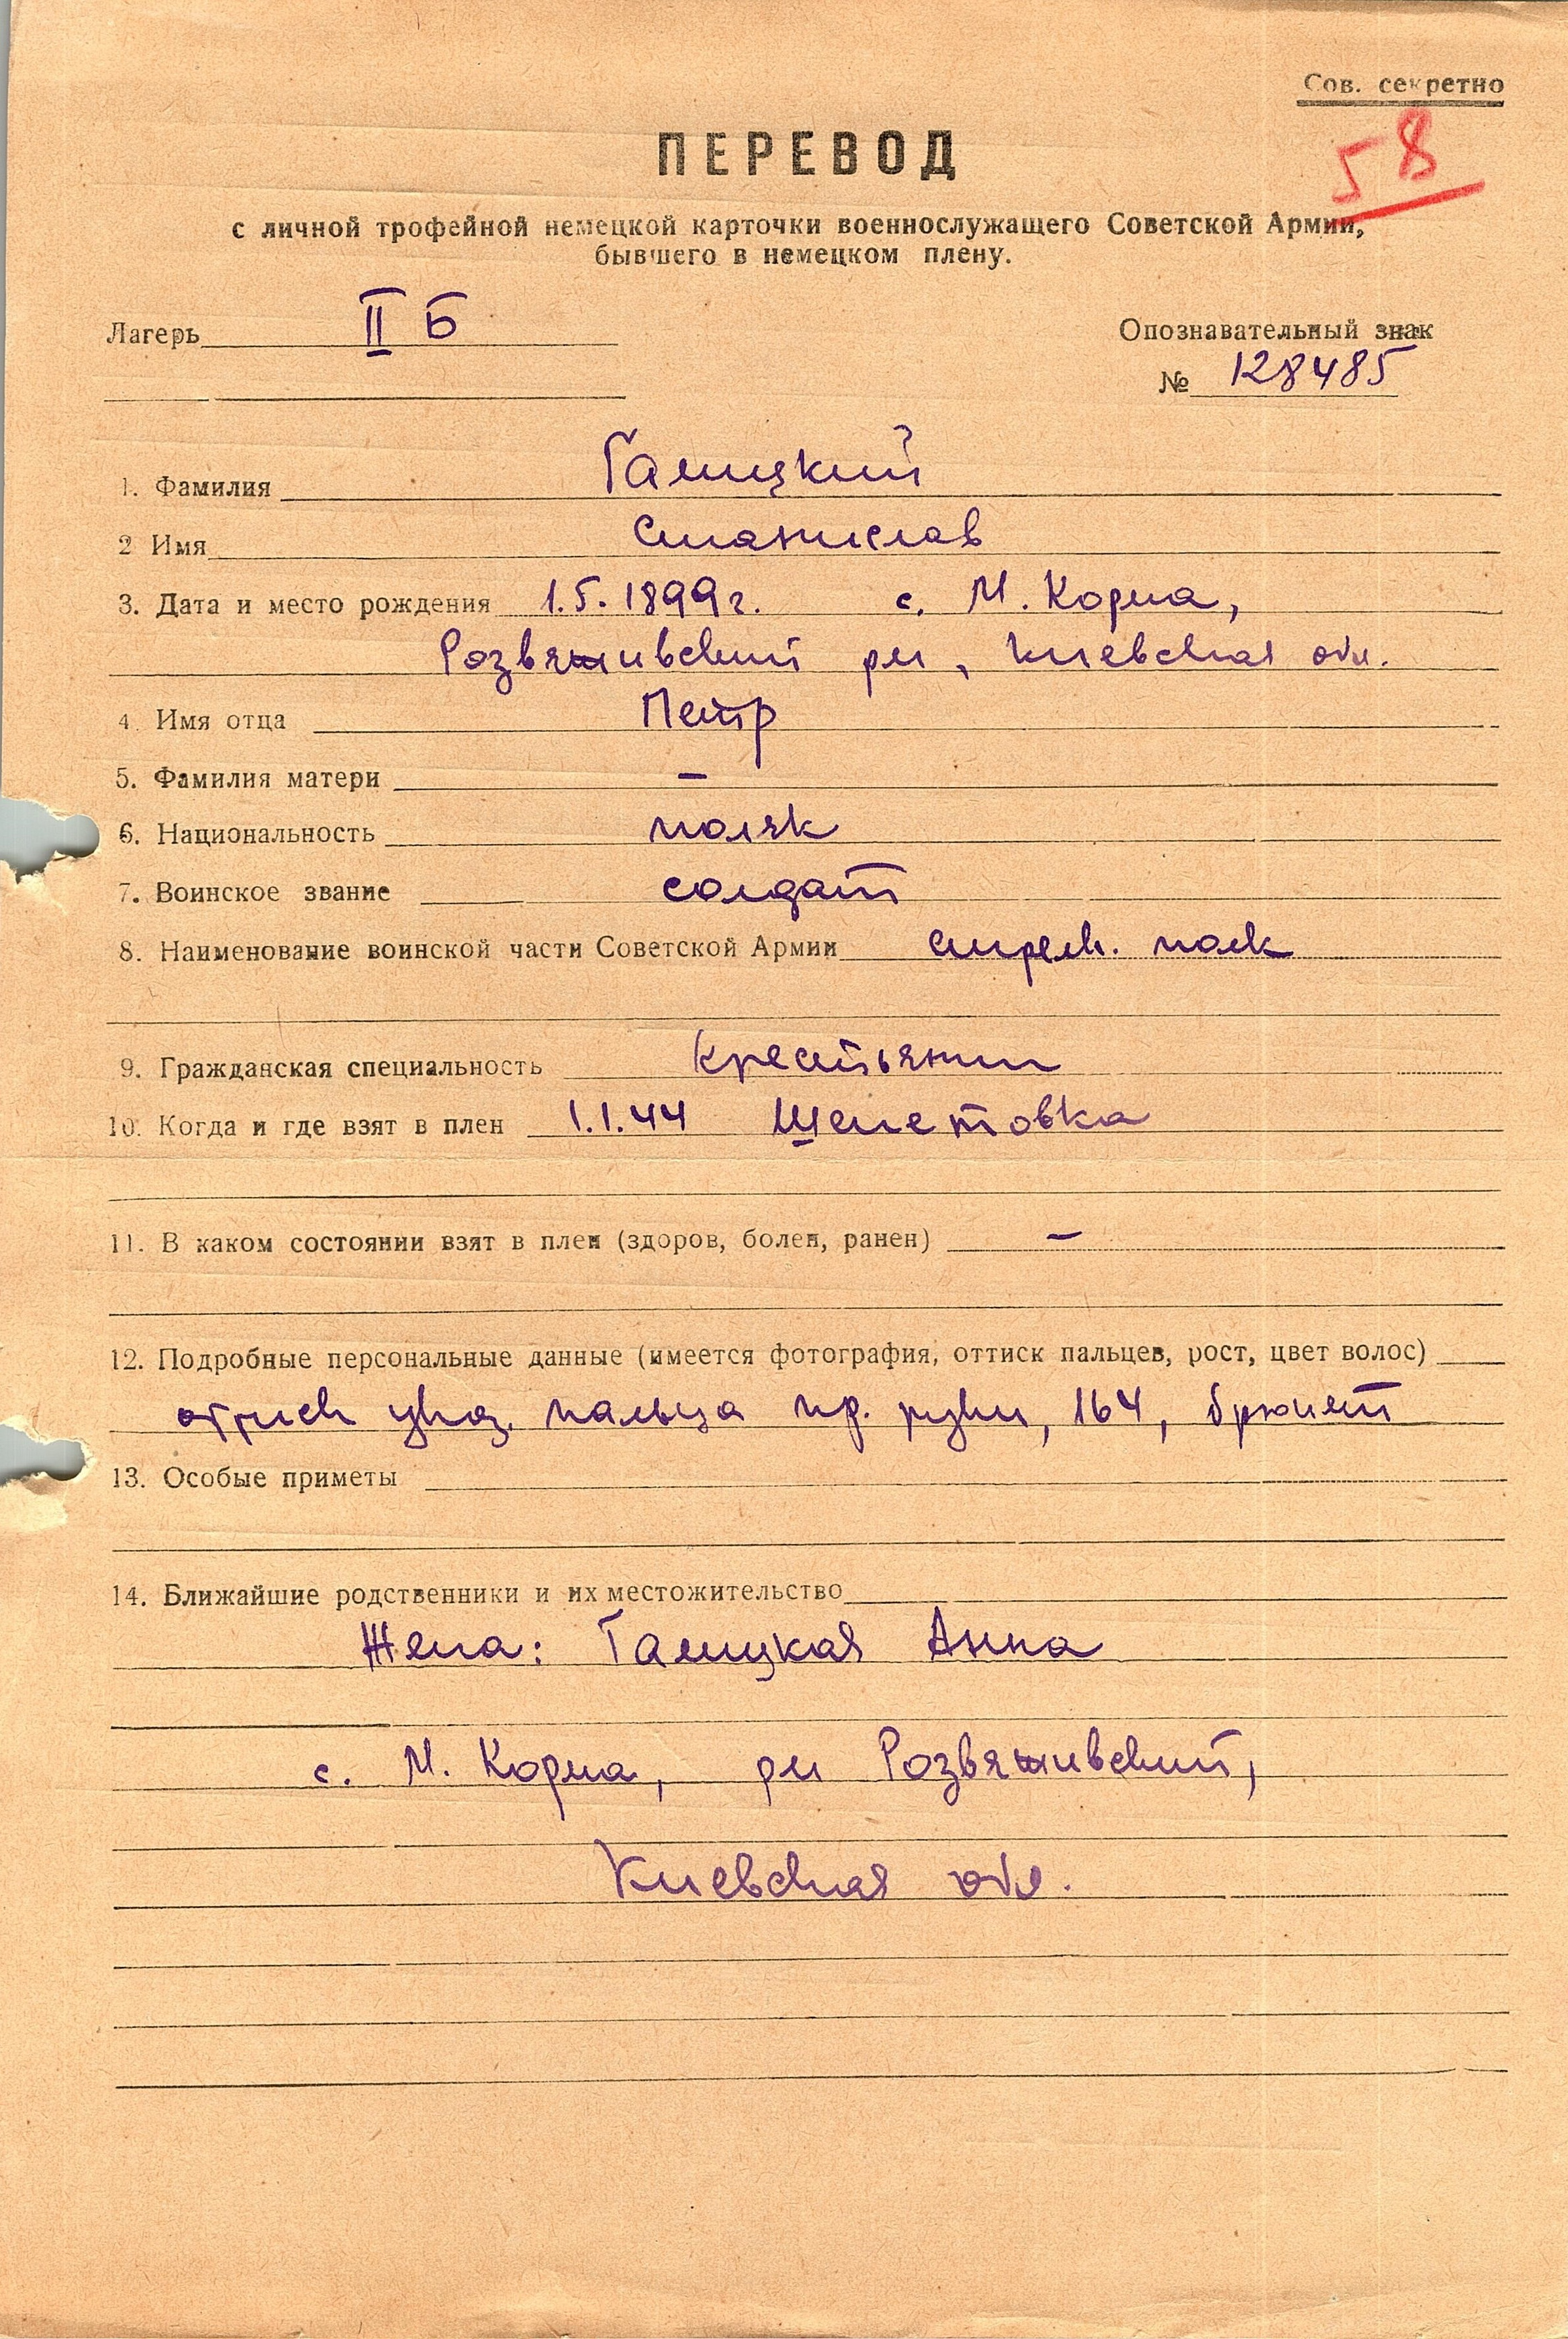 Сов. секретно
58
ПЕРЕВОД
с личной трофейной немецкой карточки военнослужащего Советской Армии,
бывшего в немецком плену.
Лагерь II Б
Опознавательный знак
№ 128485
1. Фамилия Галицкий
2 Имя Станислав
3. Дата и место рождения 1.5.1899г. с. М. Корма,
Розвяживский рн, Киевская обл.
4. Имя отца Петр
5. Фамилия матери –
6. Национальность поляк
7. Воинское звание солдат
8. Наименование воинской части Советской Армии стрелк. полк
9. Гражданская специальность крестьянин
10. Когда и где взят в плен 1.1.44 Шепетовка
11. В каком состоянии взят в плен (здоров, болен, ранен) –
12. Подробные персональные данные (имеется фотография, оттиск пальцев, рост, цвет волос)
оттиск указ. пальца пр. руки, 164, брюнет
13. Особые приметы
14. Ближайшие родственники и их местожительство
Жена: Галицкая Анна
с. М. Корма, рн Розвяживский,
Киевская обл.